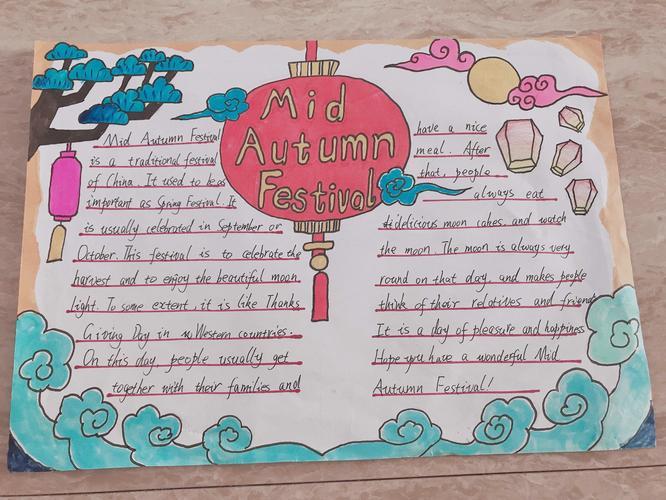 Mid
Autumn
Festival
Mid Autumn Festival
is a traditional festival
of China. It used to be as
important as Spring Festival. It
is usually celebrated in September or
October. This festival is to celebrate the
harvest and to enjoy the beautiful moon
light. To some extent, it is like Thanks
Giving Day in Western countries.
On this day, people usually get
together with their families and
have a nice
meal. After
that, people
always eat
delicious moon cakes, and watch
the moon. The moon is always very
round on that day, and makes people
think of their relatives and friend
It is a day of pleasure and happiness
Hope you have a wonderful Mid
Autumn Festival!